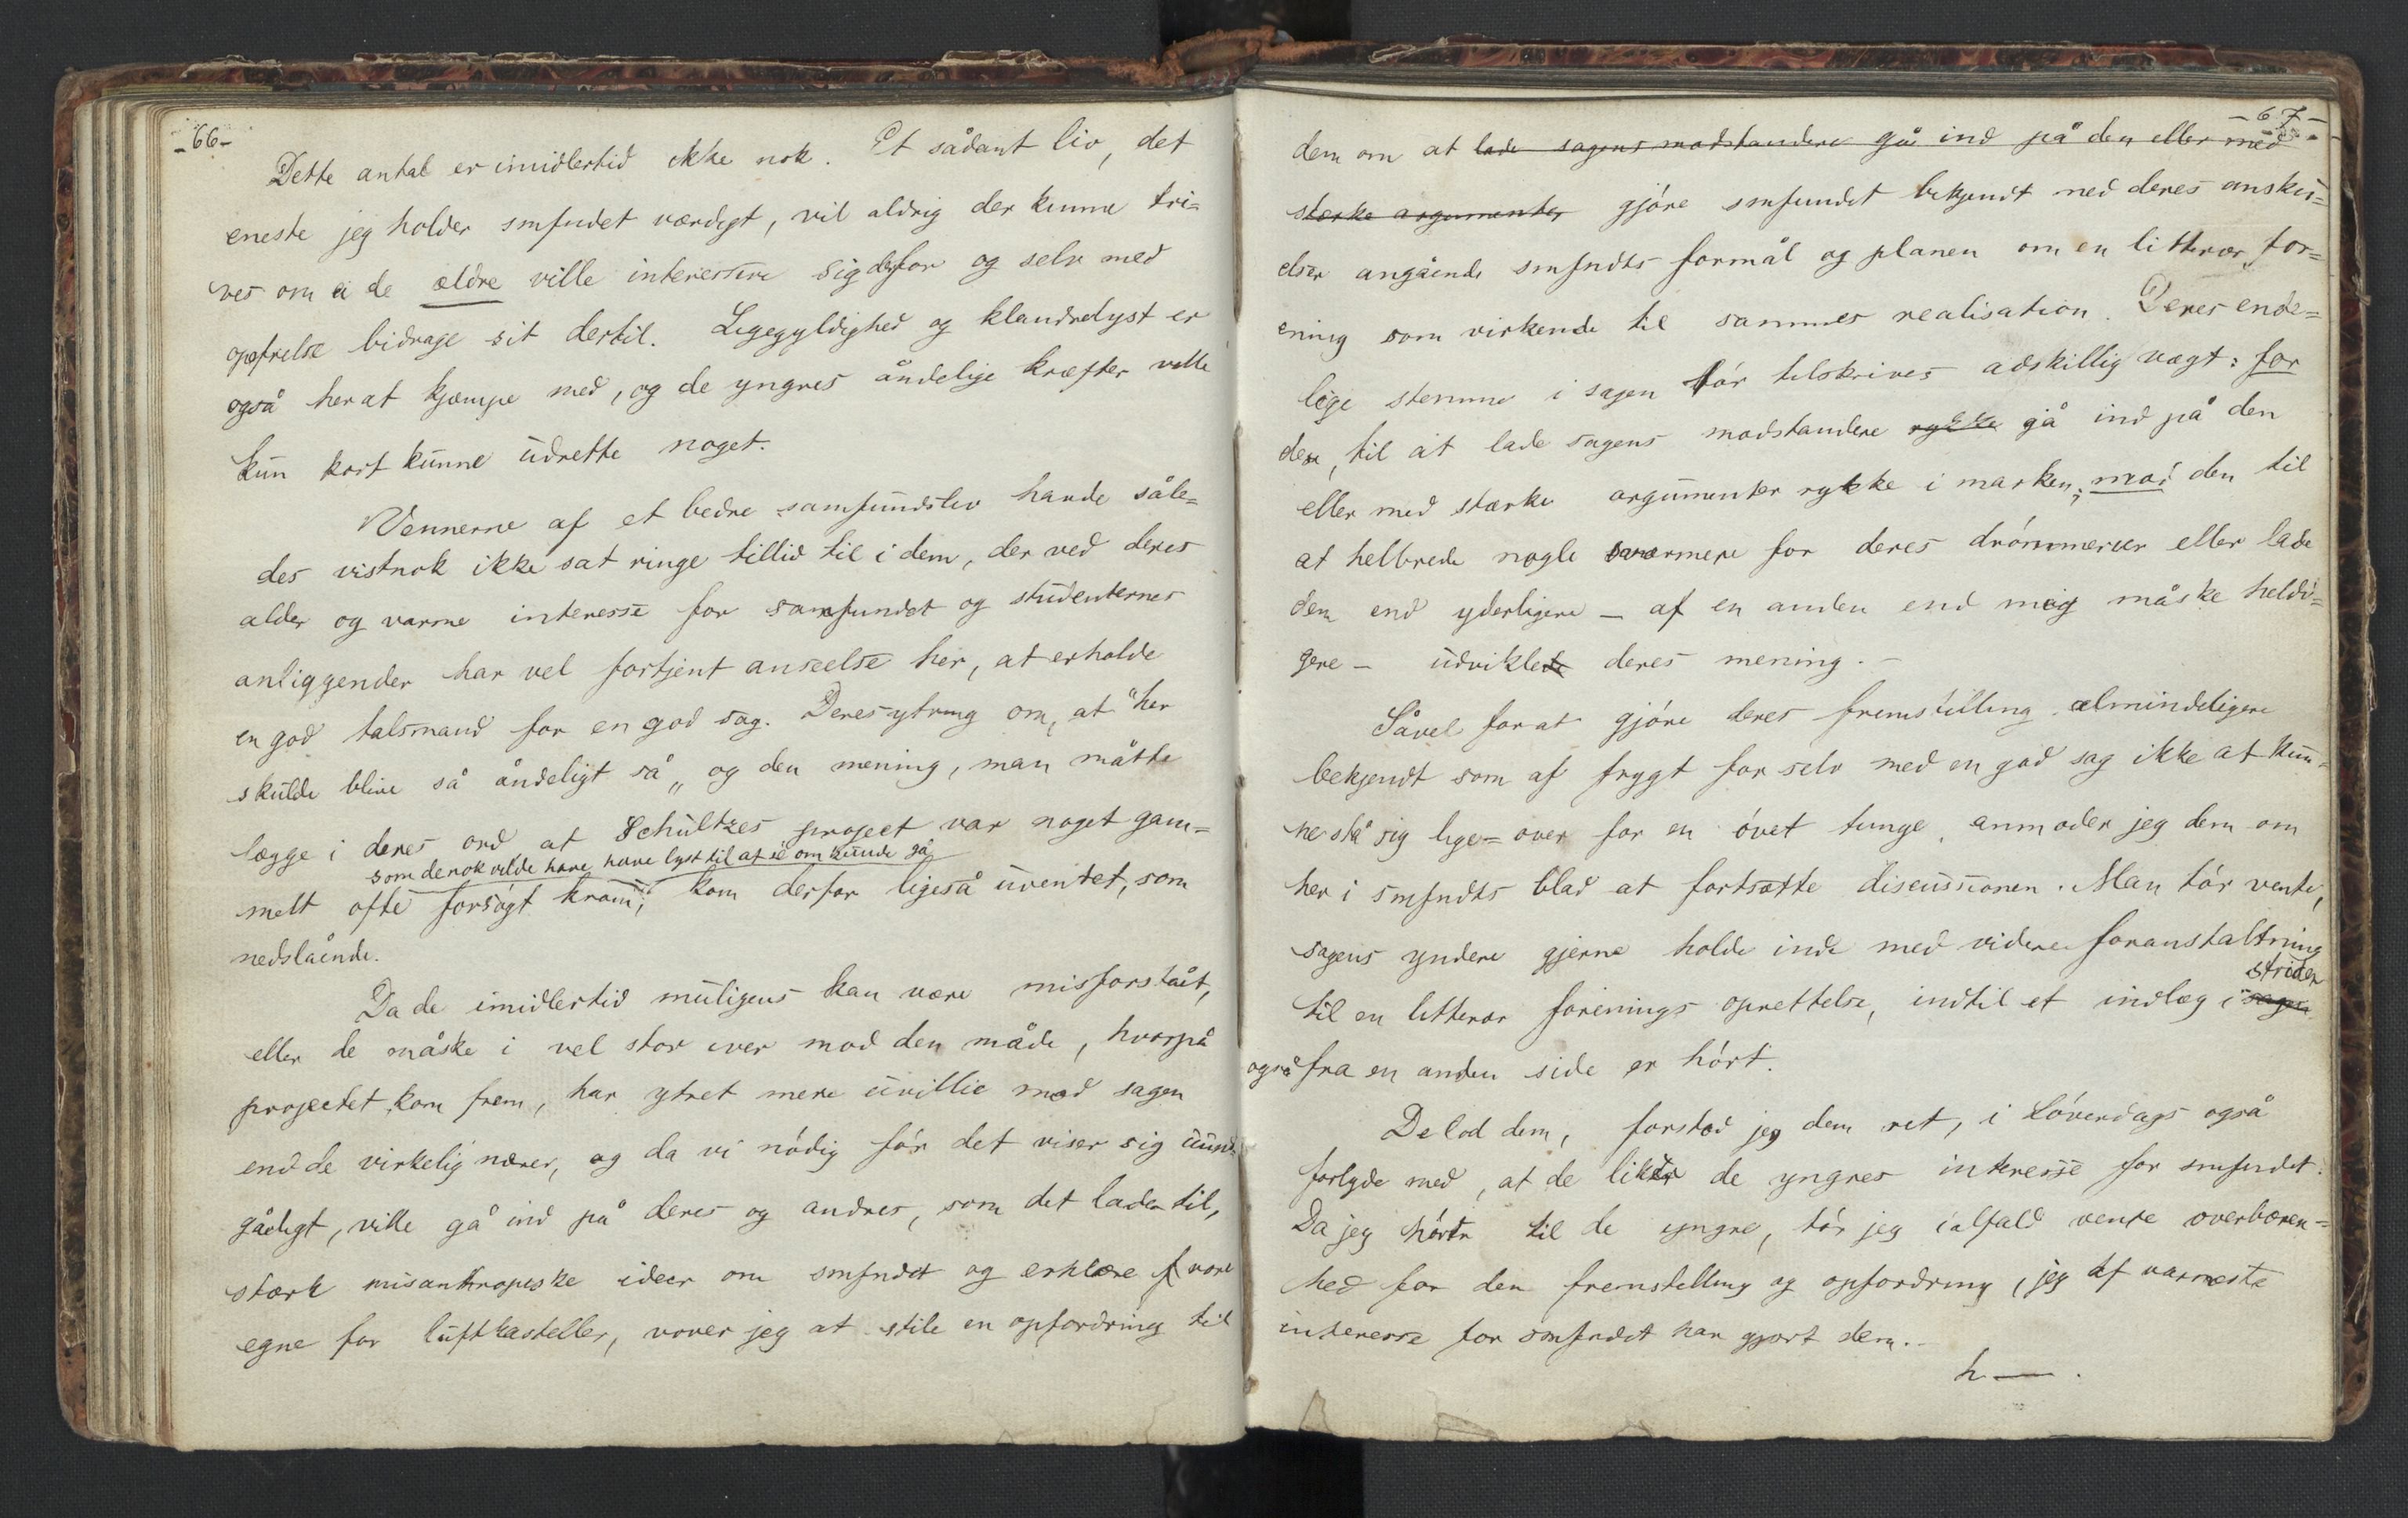 -66-
Dette antal er imidlertid ikke nok. Et sådant liv, det
eneste jeg holder smfndet værdigt, vil aldrig der kunne tri=
ves om ei de ældre ville interessere sig derfor og selv med
opofrelse bidrage sit dertil. Ligegyldighed og klandrelyst er
også her at kjæmpe med, og de yngres åndelige kræfter ville
kun kort kunne udrette noget.
Vennerne af et bedre samfundsliv havde såle=
des vistnok ikke sat ringe tillid til i dem, der ved deres
alder og varme interesse for samfundet og studenternes
anliggender har vel fortjent anseelse her, at erholde
en god talsmand for en god sag. Deres ytring om, at "her
skulde blive så åndeligt så„ og den mening, man måtte
lægge i deres ord at Schultzes project var noget gam=
som de nok vilde have have lyst til at se om kunde gå
melt ofte forsøgt kram; kom derfor ligeså uventet, som
nedslående.
Da de imidlertid muligens kan være misforstået,
eller de måske i vel stor iver mod den måde, hvorpå
projectet kom frem, har ytret mere uvillie mod sagen
end de virkelig nærer, og da vi nódig fór det viser sig uund=
gåeligt, ville gå ind på deres og andres, som det lader til,
stærk misanthropiske ideer om smfndet og erklære vore
egne for luftkasteller, vover jeg at stile en opfordring til
-67-
dem om at lade sagens modstandere gå ind på den eller med
stærke argumenter gjóre smfundet bekjendt med deres ansku=
elser angående smfndts formål og planen om en litterær for=
ening som virkende til sammes realisation. Deres ende=
lige stemme i sagen tór tilskrives adskillig vægt: for
den, til at lade sagens modstandere rykke gå ind på den
eller med stærke argumenter rykke i marken; mod den til
at helbrede nogle sværmere for deres drómmerier eller lade
dem end yderligere – af en anden end mig måske heldi=
gere – udviklet deres mening. –
Såvel for at gjóre deres fremstilling almindeligere
bekjendt som af frygt for selv med en god sag ikke at kun=
ne stå sig lige=over for en óvet tunge, anmoder jeg dem om
her i smfndts blad at fortsætte discussionen. Man tór vente,
sagens yndere gjerne holde inde med videre foranstaltning
striden
til en litterær forenings oprettelse, indtil et indlæg i sagen
også fra en anden side er hórt.
De lod dem, forstod jeg dem ret, i Lóverdags også
forlyde med, at de likte de yngres interesse for smfundet.
Da jeg hórer til de yngre, tór jeg ialfald vente overbæren=
hed for den fremstilling og opfordring, jeg af varmeste
interesse for smfundet har gjort dem. –
h—.